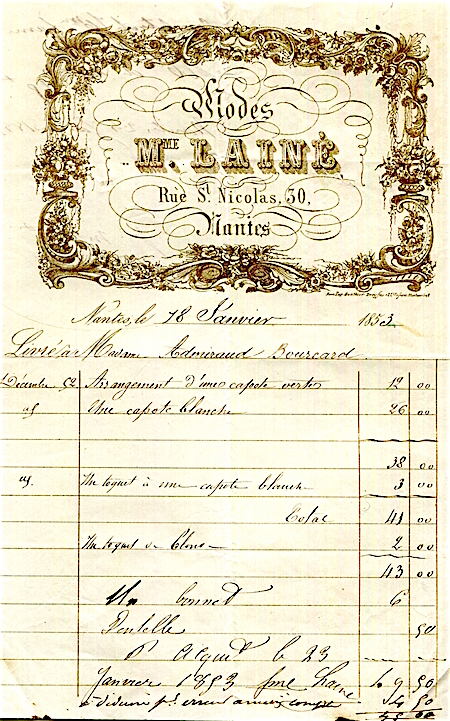 Modes
Mme. LAINÉ,
Rue St. Nicolas, 30,
Nantes
Nantes, le 18 Janvier 1853
Livré à Madame Bourcard
Décembre 52 Arrangement d'une capote verte 12 00
Une capote blanche 26 00
38 00
Un toquet à une capote blanche 3 00
Total 41 00
Un toquet de 2 00
43 00
Un bonnet 6
Dentelle 50
Pr Acquit le 23
Janvier 1853 Lainé 49 50
à déduire pr erreur